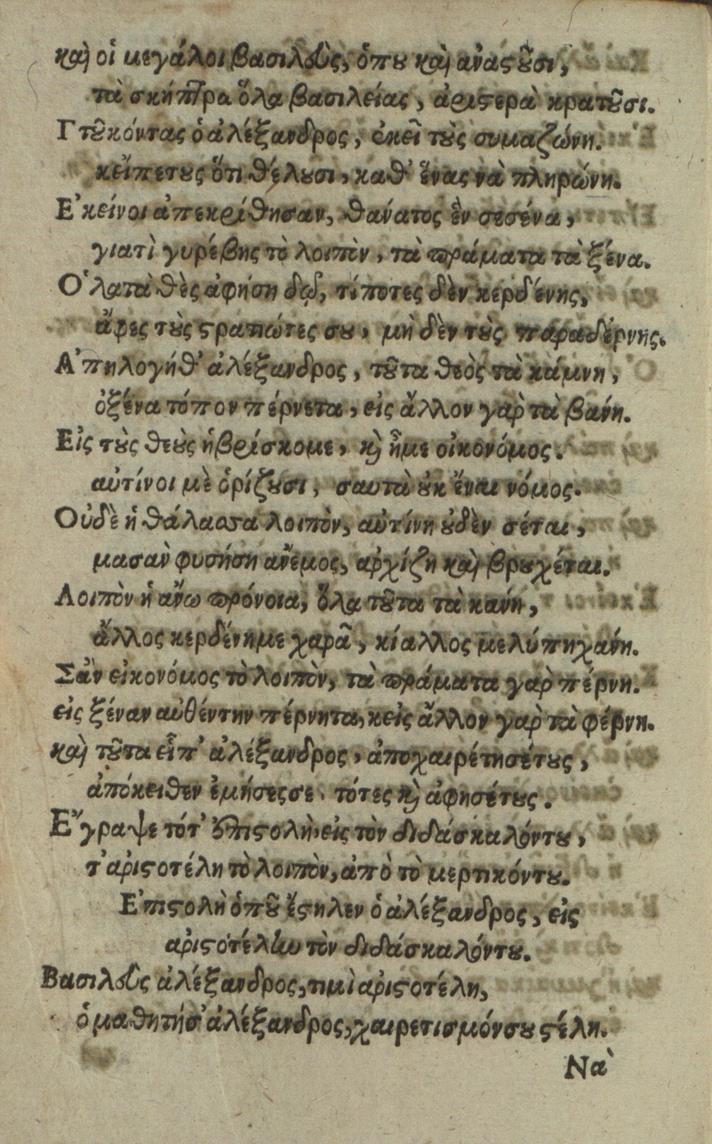 καὶ οἱ μεγάλοι βασιλεῖς, ὁποῦ καὶ ἀναςοῦσι,
τὰ σκήπτρα ὅλα βασιλείας, ἀριςερὰ κρατοῦσι.
Γροικόντας ὁ ἀλέξανδρος, ἐκεῖ τοὺς συμαζώνη.
κεἴπετους ὅτι θέλουσι, καθ' ἕνας νὰ πληρώνη.
Ἐκείνοι ἀπεκρίθησαν, θάνατος ἒν σεσένα,
γιατὶ γυρέβης τὸ λοιπὸν, τὰ πράματα τὰ ξένα.
Ὁλατὰ θὲς ἀφήση δῶ, τίποτες δὲν κερδένης,
ἄφες τοὺς ςρατιώτες σου, μὴ δὲν τοὺς παραδέρνης.
Ἀπηλογήθ' ἀλέξανδρος, τοῦτα θεὸς τὰ κάμνη,
ὀξένα τόπον πέρνετα, εἰς ἄλλον γαρ τὰ βανη.
Εἰς τοὺς θεοὺς ἡβρίσκομε, κὶ ἦμε οἰκονόμος.
αὐτίνοι μὲ ὁρίζουσι, σαυτὰ οὐκ ἔναι νόμος.
Οὐδὲ ἡ θάλασσα λοιπὸν, αὐτίνη οὐδὲν σέται,
μασαν φυσήση ἄνεμος, ἀρχίζη καὶ βρυχέται.
Λοιπὸν ἡ ἄνω πρόνοια, ὅλα τοῦτα τὰ κανη,
ἄλλος κερδένημε χαρᾶ, κι αλλος μελύπηχανη.
Σὰν εἰκονόμος τὸ λοιπὸν, τὰ πράματα γαρ πέρνη.
εἰς ξέναν αὐθέντην πέρνητα, κεἰς ἄλλον γαρ τὰ φέρνη.
καὶ τοῦτα εἶπ' ἀλέξανδρος, ἀποχαιρέτησέτους,
ἀπόκειθεν ἐμήσεςσε. τότες κὶ ἀφησέτους.
Ἔγραψε τότ' ἐπιςολὴ, εἰς τὸν διδάσκαλόντου,
τ' ἀριςοτέλη τὸ λοιπὸν, ἀπὸ τὸ μερτικόντου.
Ἐπιςολὴ ὁποῦ ἔςηλεν ὁ ἀλέξανδρος, εἰς
ἀριςοτέλην τὸν διδάσκαλόντου.
Βασιλεὺς ἀλέξανδρος, τιμὶ ἀριςοτέλη,
ὁ μαθητήσ' ἀλέξανδρος, χαιρετισμόνσου ςέλη.
Νὰ